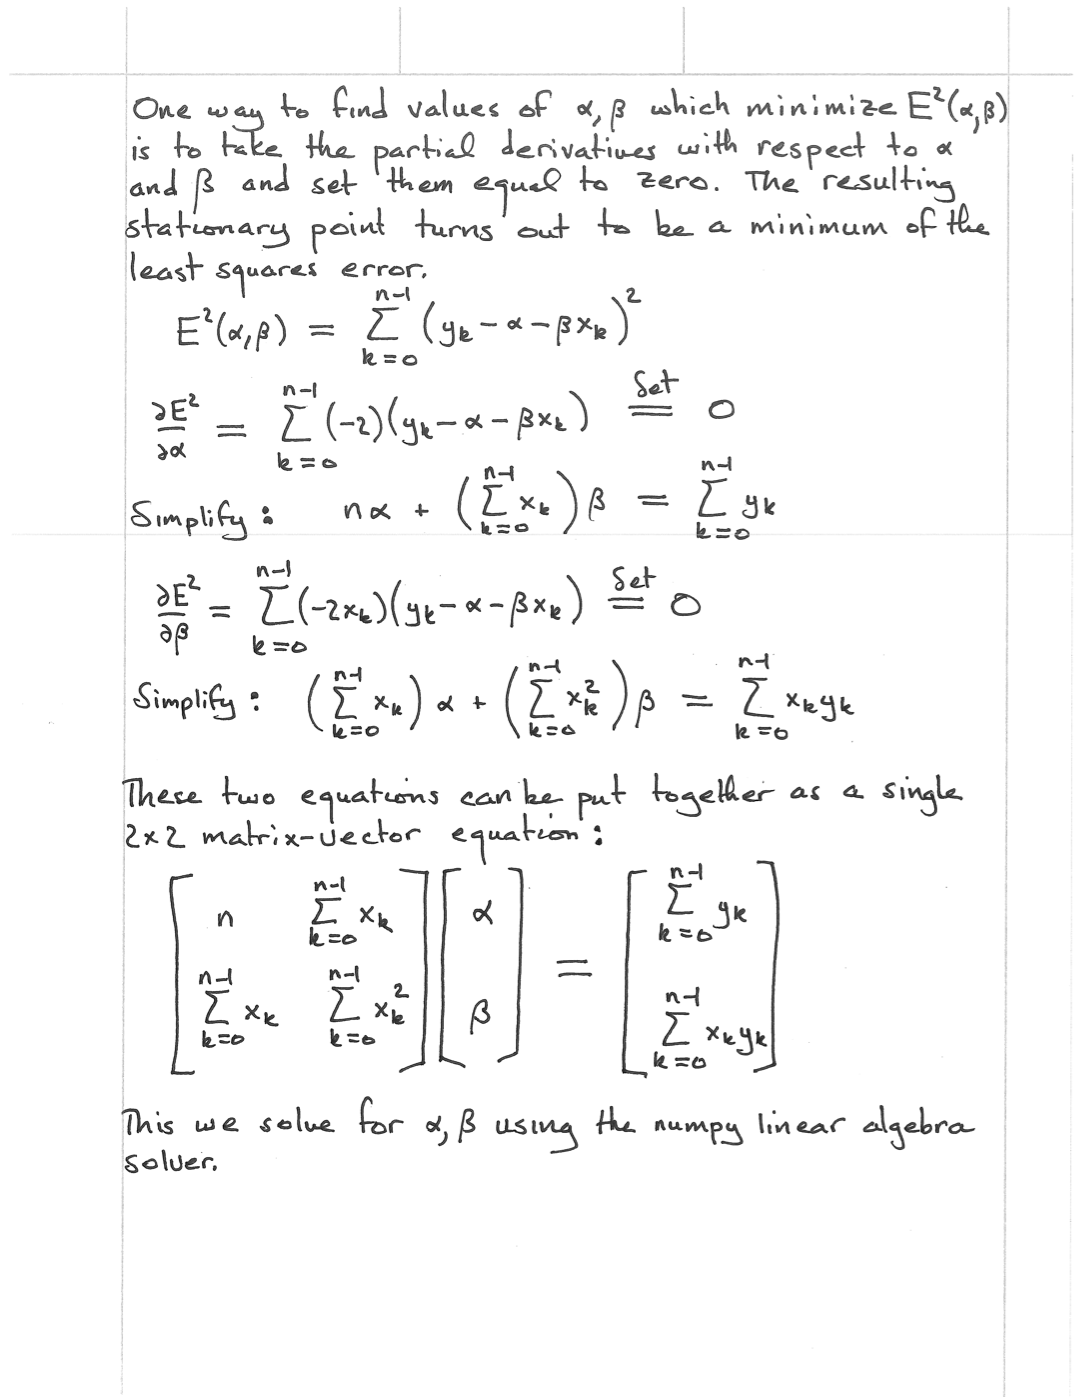 One way to find values of α, β which minimize E²(α,β)
is to take the partial derivatives with respect to α
and β and set them equal to zero. The resulting
stationary point turns out to be a minimum of the
least squares error.
E²(α,β) = ∑_{k=0}^{n-1} (y_k - α - βx_k)²
∂E²/∂α = ∑_{k=0}^{n-1} (-2)(y_k - α - βx_k) Set= 0
Simplify: nα + (∑_{k=0}^{n-1} x_k) β = ∑_{k=0}^{n-1} y_k
∂E²/∂β = ∑_{k=0}^{n-1} (-2x_k)(y_k - α - βx_k) Set= 0
Simplify: (∑_{k=0}^{n-1} x_k) α + (∑_{k=0}^{n-1} x_k²) β = ∑_{k=0}^{n-1} x_k y_k
These two equations can be put together as a single
2x2 matrix-vector equation:
[ n ∑_{k=0}^{n-1} x_k ] [ α ] = [ ∑_{k=0}^{n-1} y_k ]
[ ∑_{k=0}^{n-1} x_k ∑_{k=0}^{n-1} x_k² ] [ β ] [ ∑_{k=0}^{n-1} x_k y_k ]
This we solve for α, β using the numpy linear algebra
solver.